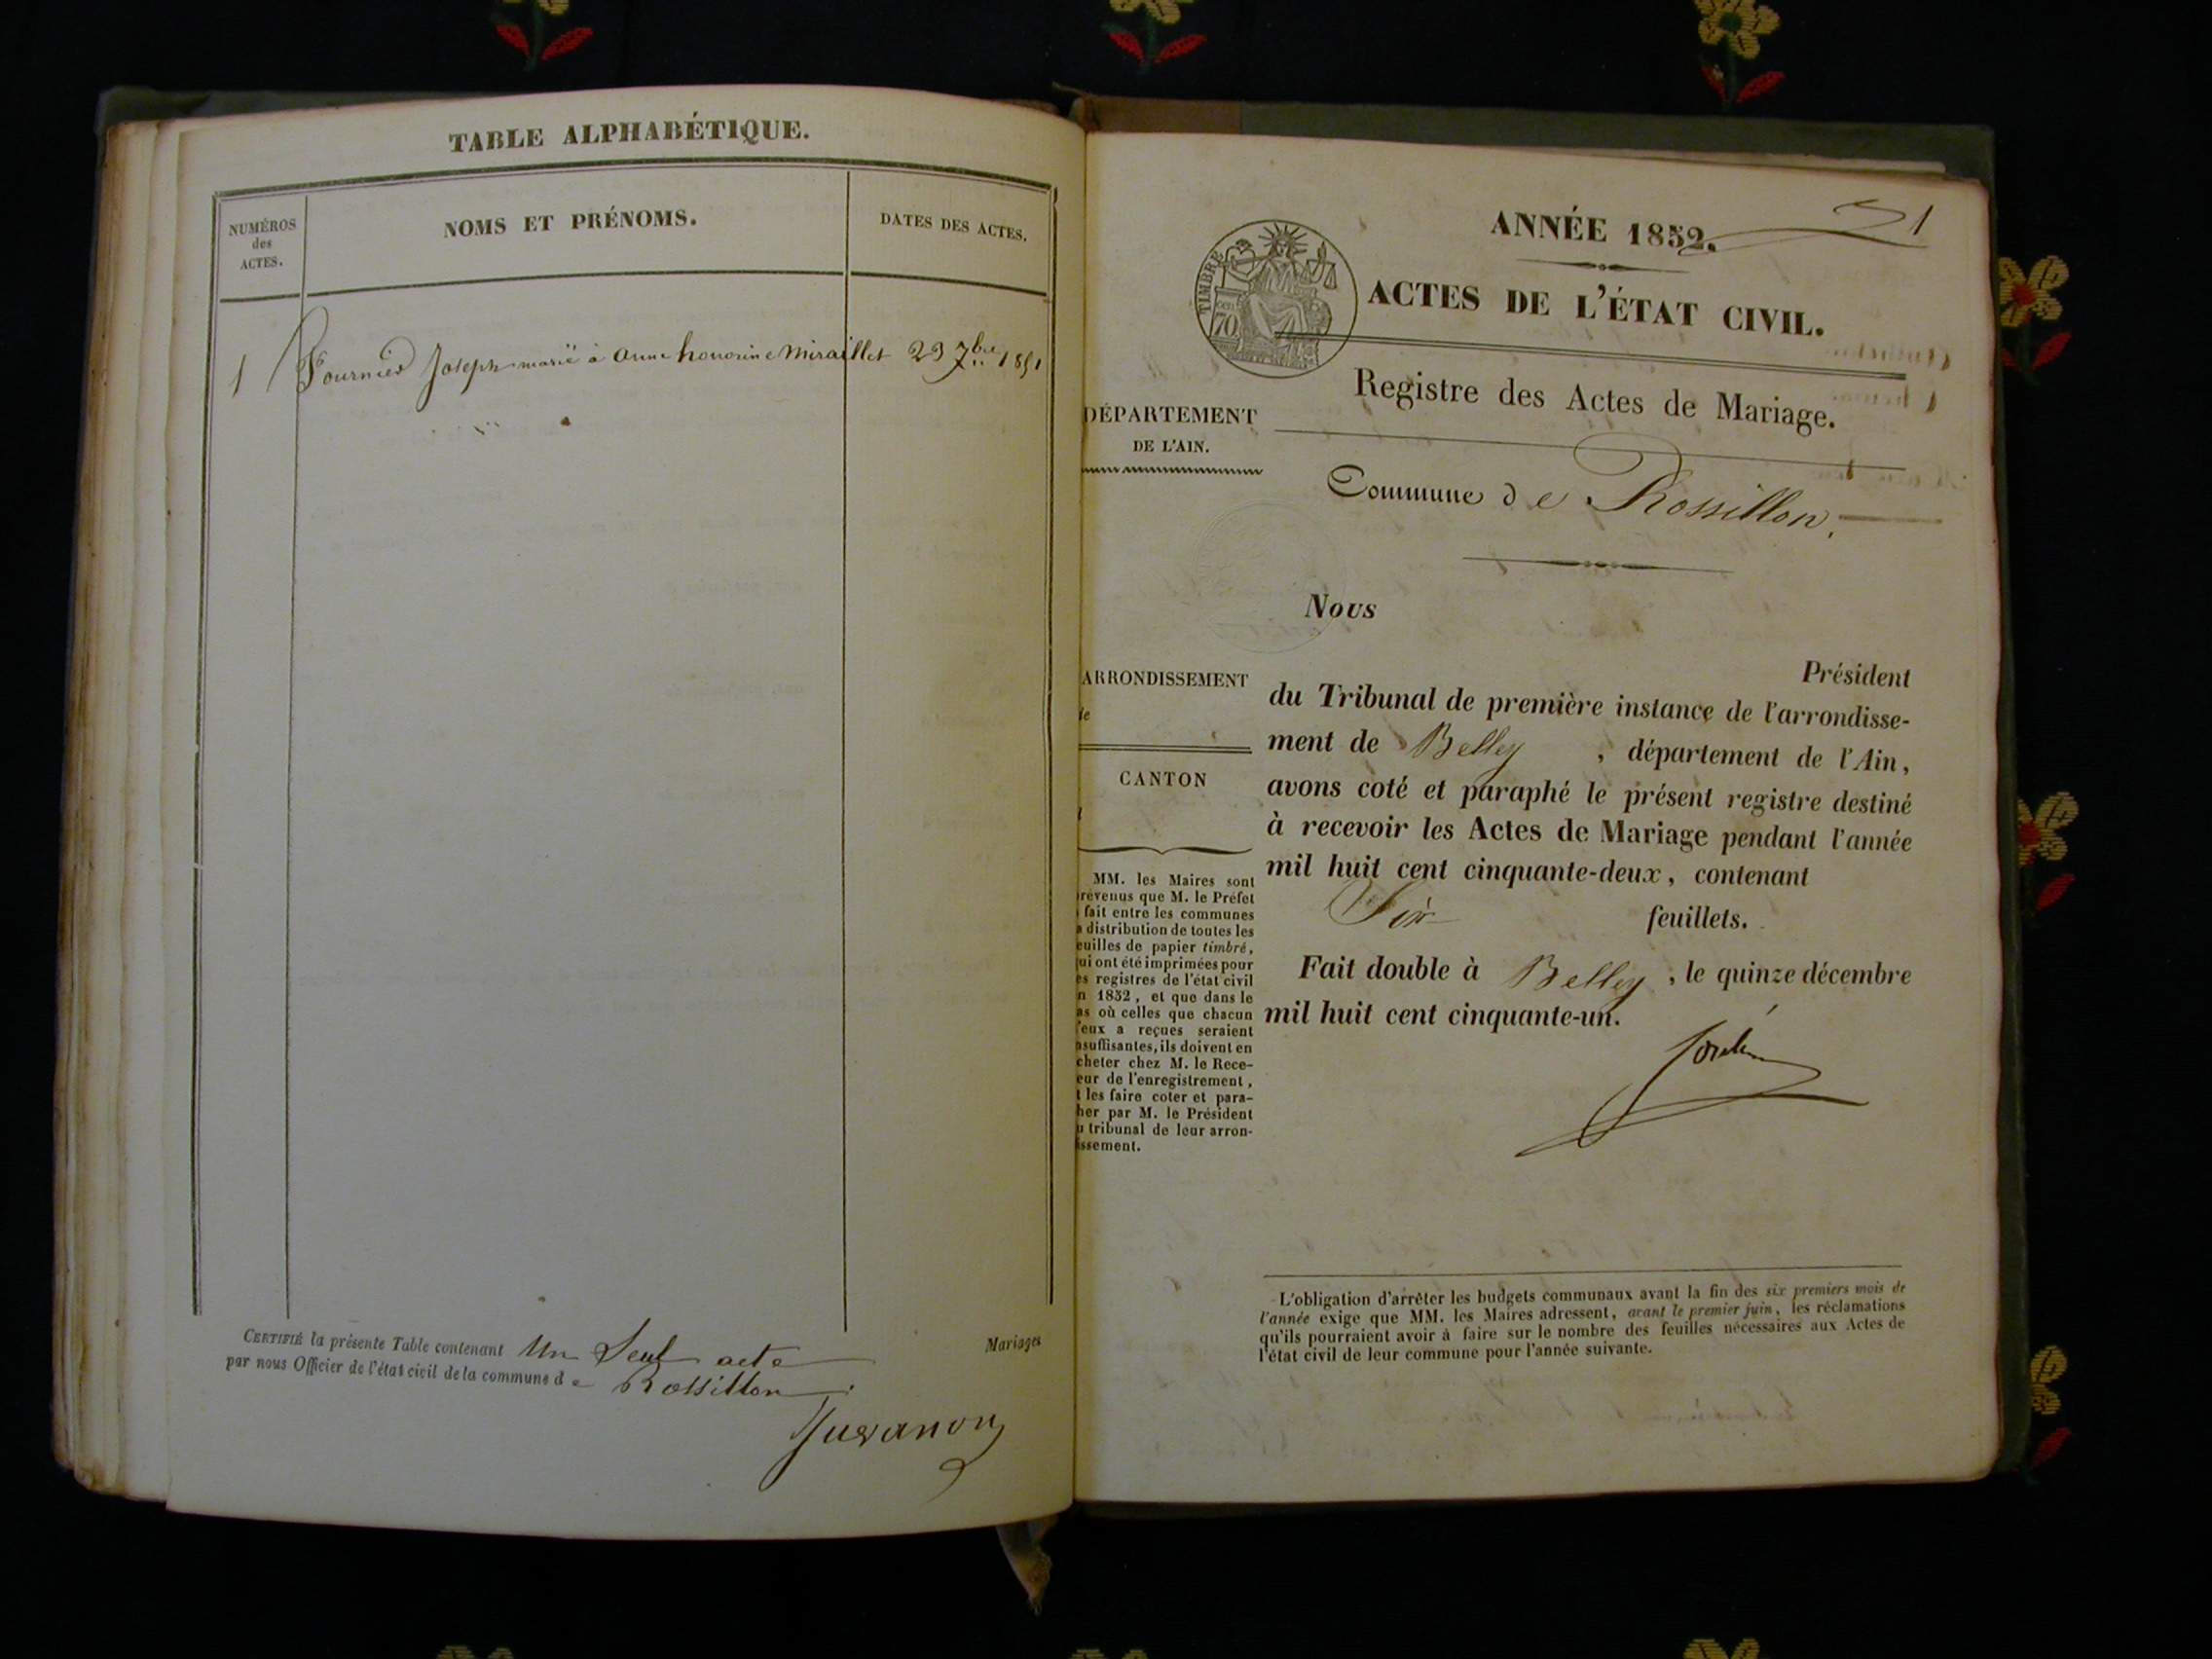 TABLE ALPHABÉTIQUE.
NUMÉROS
des
ACTES.
NOMS ET PRÉNOMS.
DATES DES ACTES.
1 Fournier Joseph marié à Anne honorine Miraillet 29 7bre 1851
CERTIFIÉ la présente Table contenant Un Seul acte Mariages
par nous Officier de l'état civil de la commune de Rossillon
Juvanon
1
ANNÉE 1852.
TIMBRE
70
ACTES DE L'ÉTAT CIVIL.
Registre des Actes de Mariage.
DÉPARTEMENT
DE L'AIN.
Commune de Rossillon.
Nous
Président
ARRONDISSEMENT
du Tribunal de première instance de l'arrondisse-
ment de Belley , département de l'Ain,
avons coté et paraphé le présent registre destiné
à recevoir les Actes de Mariage pendant l'année
mil huit cent cinquante-deux, contenant
Six feuillets.
Fait double à Belley , le quinze décembre
mil huit cent cinquante-un.
CANTON
MM. les Maires sont
révenus que M. le Préfet
fait entre les communes
a distribution de toutes les
euilles de papier timbré,
ui ont été imprimées pour
es registres de l'état civil
n 1852, et que dans le
as où celles que chacun
'eux a reçues seraient
nsuffisantes, ils doivent en
cheter chez M. le Rece-
eur de l'enregistrement,
t les faire coter et para-
her par M. le Président
u tribunal de leur arron-
issement.
L'obligation d'arrêter les budgets communaux avant la fin des six premiers mois de
l'année exige que MM. les Maires adressent, avant le premier juin, les réclamations
qu'ils pourraient avoir à faire sur le nombre des feuilles nécessaires aux Actes de
l'état civil de leur commune pour l'année suivante.